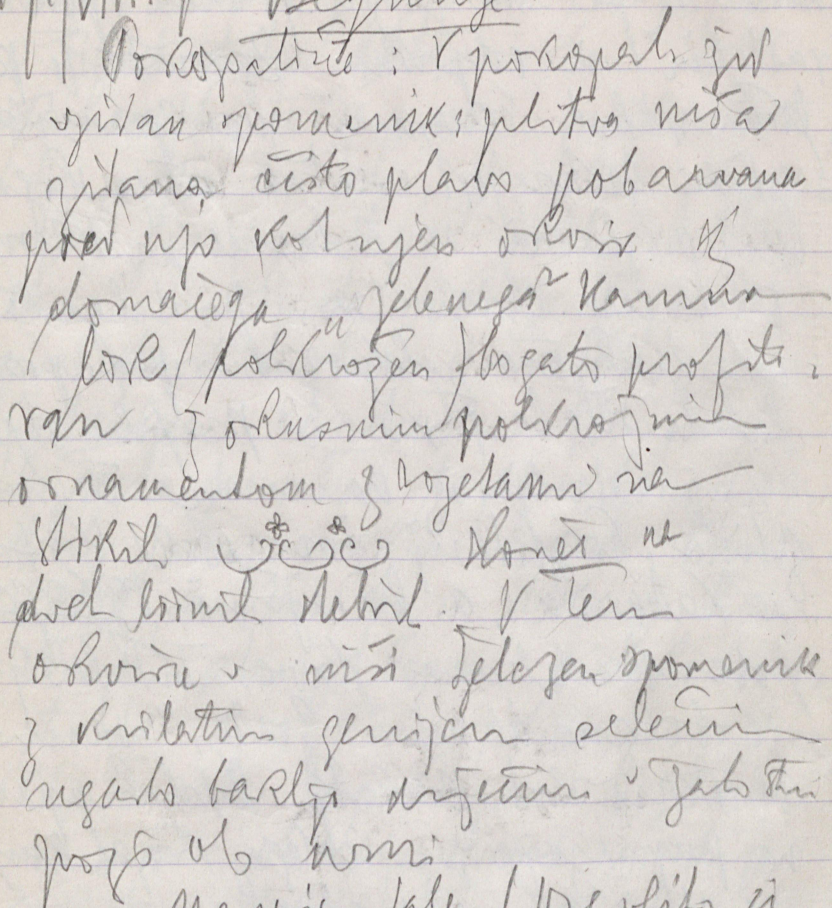 Pokopališče: V pokopal. zid
zidan spomenik: plitva niša
zidana, čisto plavo pobarvana
pred njo kot njen okvir iz
domačega „zelenega" kamna
lok (polkrožen) bogato profili-
ran z okusnim polkrožnim
ornamentom z rozetami na
stikih sloneč na
dveh ličnih stebrih. V tem
okviru v niši železen spomenik
z krilatim genijem
ugaslo baklo držečim v žalostni
pozi ob urni